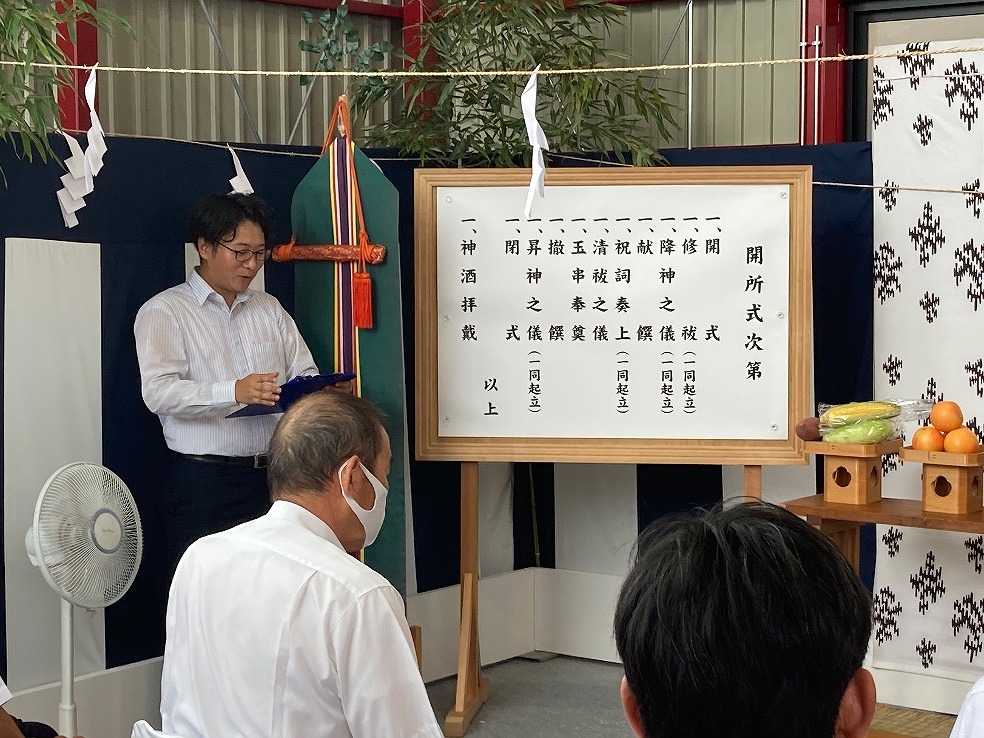 開所式次第
一、開式
一、修祓（一同起立）
一、降神之儀（一同起立）
一、献饌
一、祝詞奏上（一同起立）
一、清祓之儀
一、玉串奉奠
一、撤饌
一、昇神之儀（一同起立）
一、閉式
一、神酒拝戴
以上